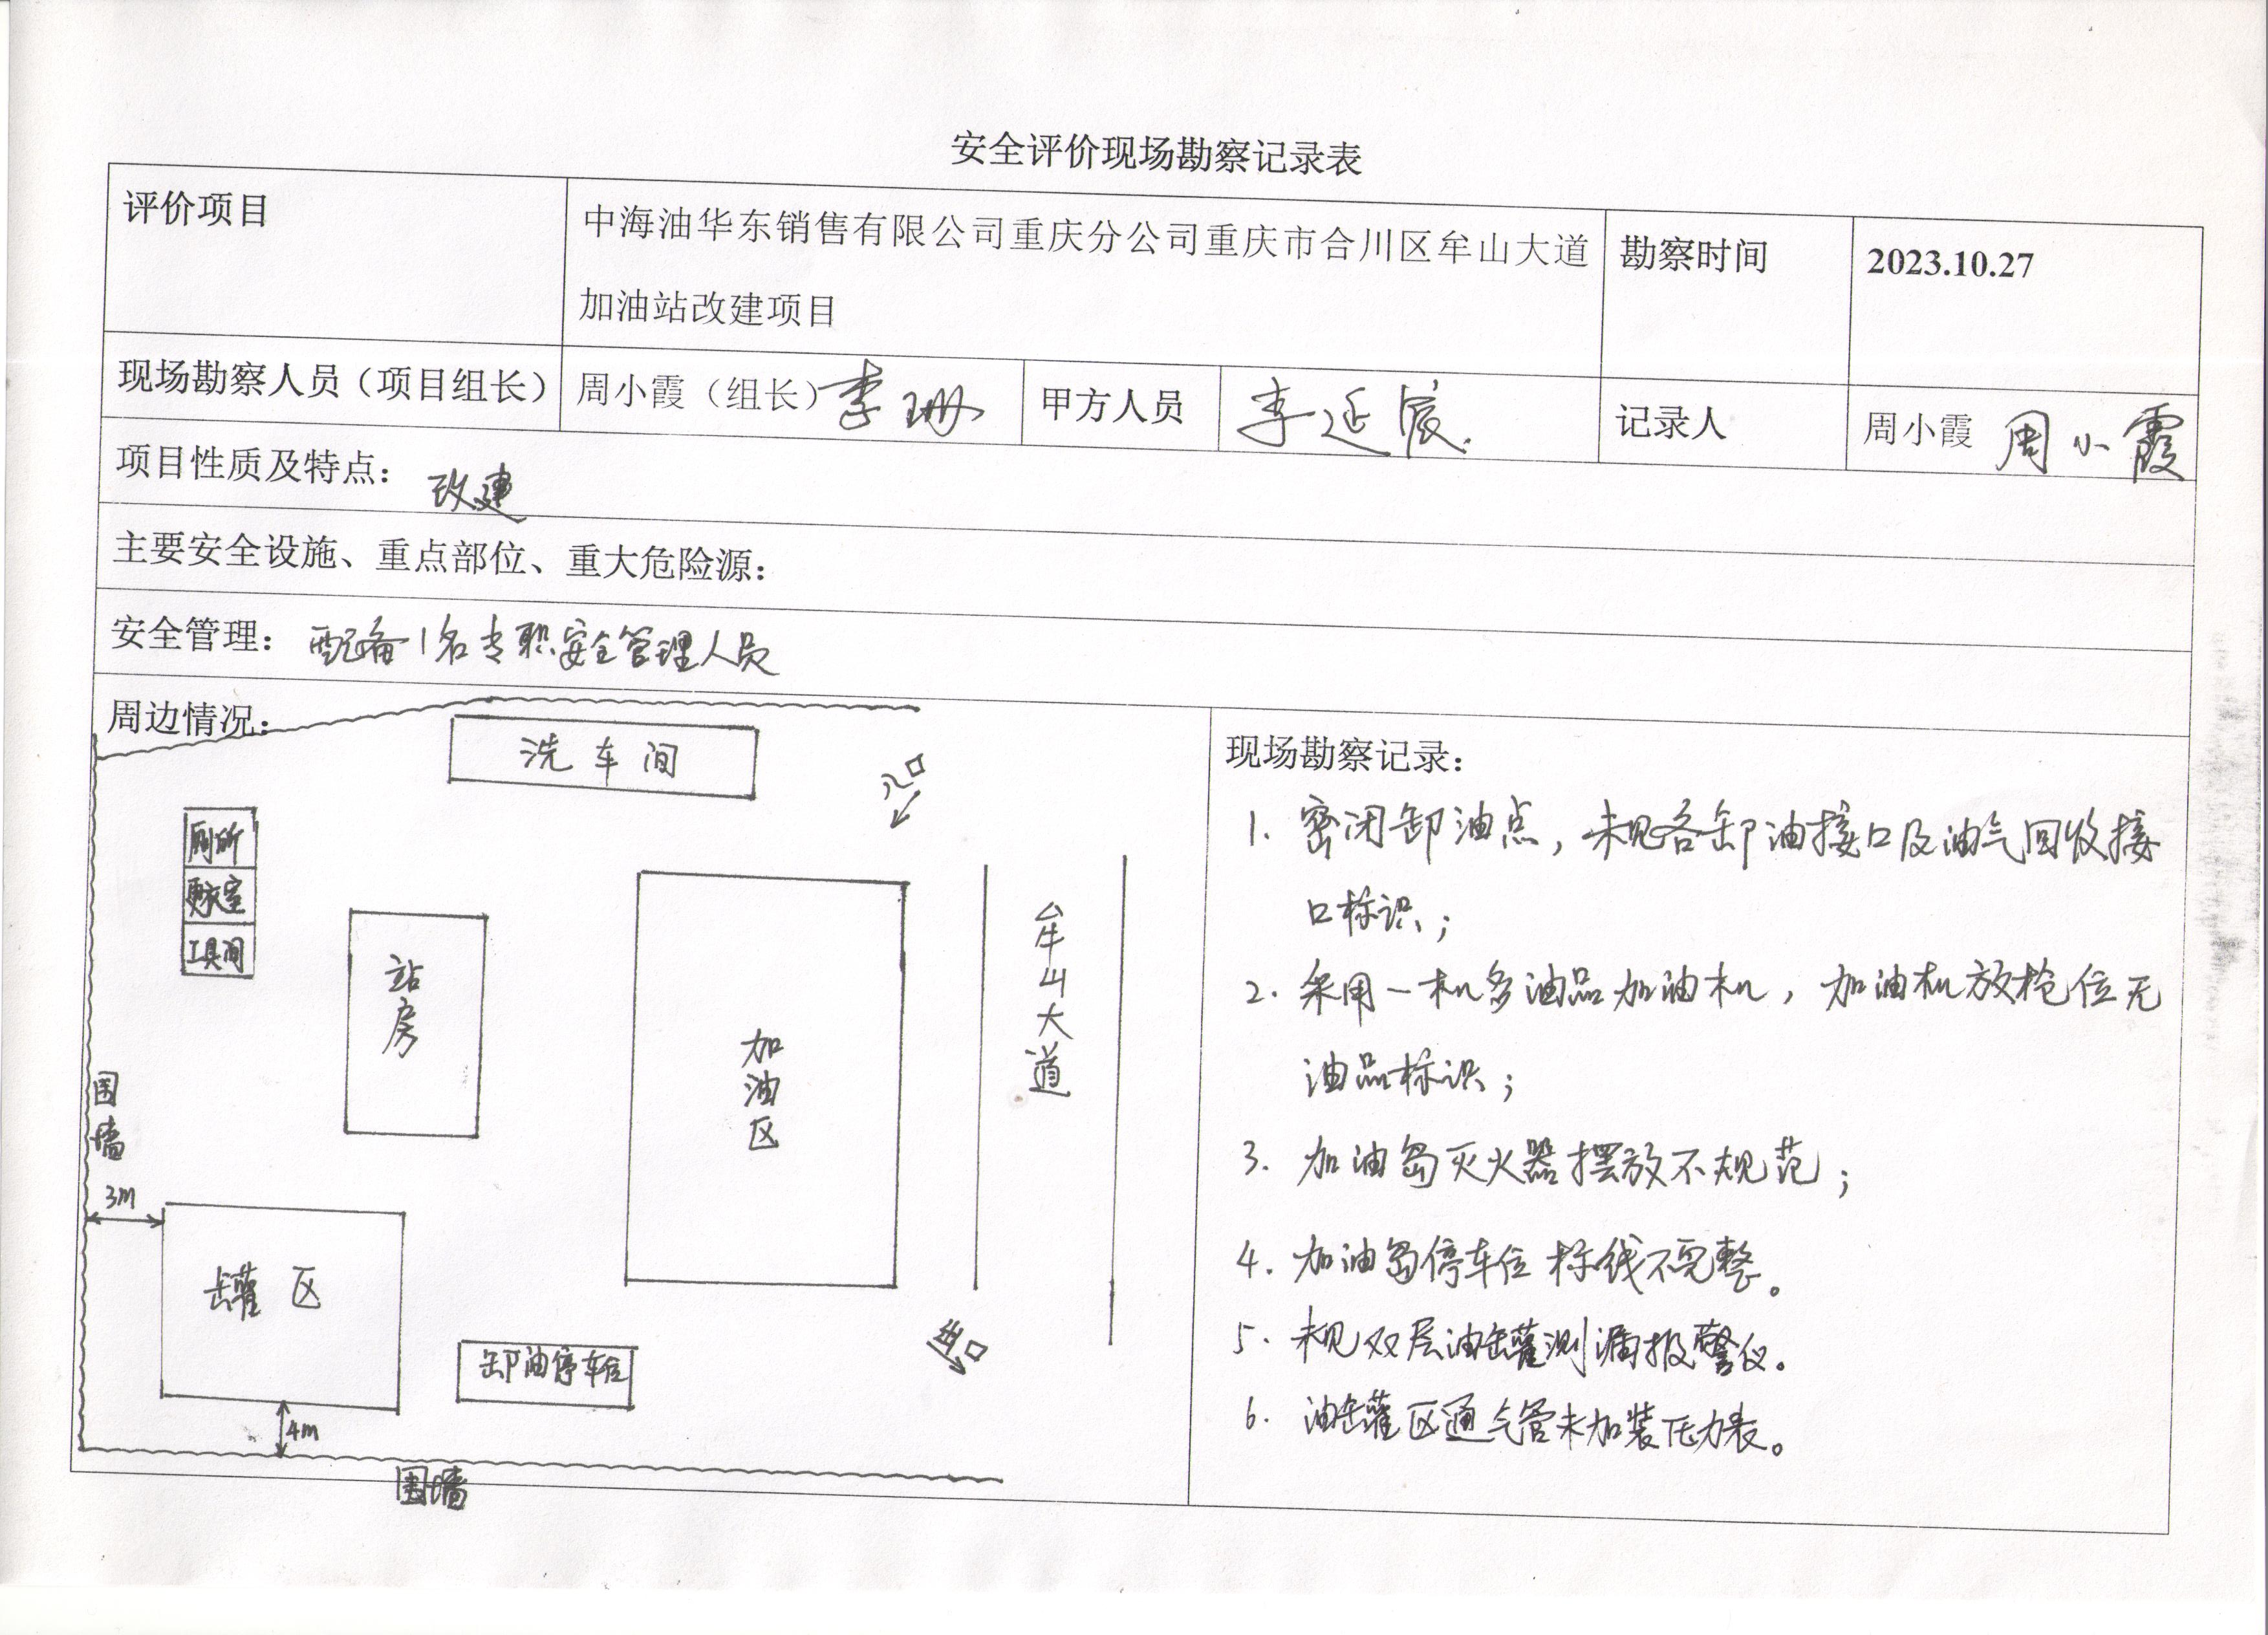 安全评价现场勘察记录表
评价项目
中海油华东销售有限公司重庆分公司重庆市合川区牟山大道
加油站改建项目
勘察时间
2023.10.27
现场勘察人员（项目组长）
周小霞（组长）李珊
甲方人员
李延宸
记录人
周小霞 周小霞
项目性质及特点：改建
主要安全设施、重点部位、重大危险源：
安全管理：配备1名专职安全管理人员
周边情况：
洗车间
入口
厕所
更衣室
工具间
站房
加油区
牟山大道
围墙
3m
罐区
卸油停车位
出口
4m
围墙
现场勘察记录：
1. 密闭卸油点，未见各卸油接口及油气回收接
口标识；
2. 采用一机多油品加油机，加油机放枪位无
油品标识；
3. 加油岛灭火器摆放不规范；
4. 加油岛停车位标线不完整。
5. 未见双层油罐测漏报警仪。
6. 油罐区通气管未加装压力表。